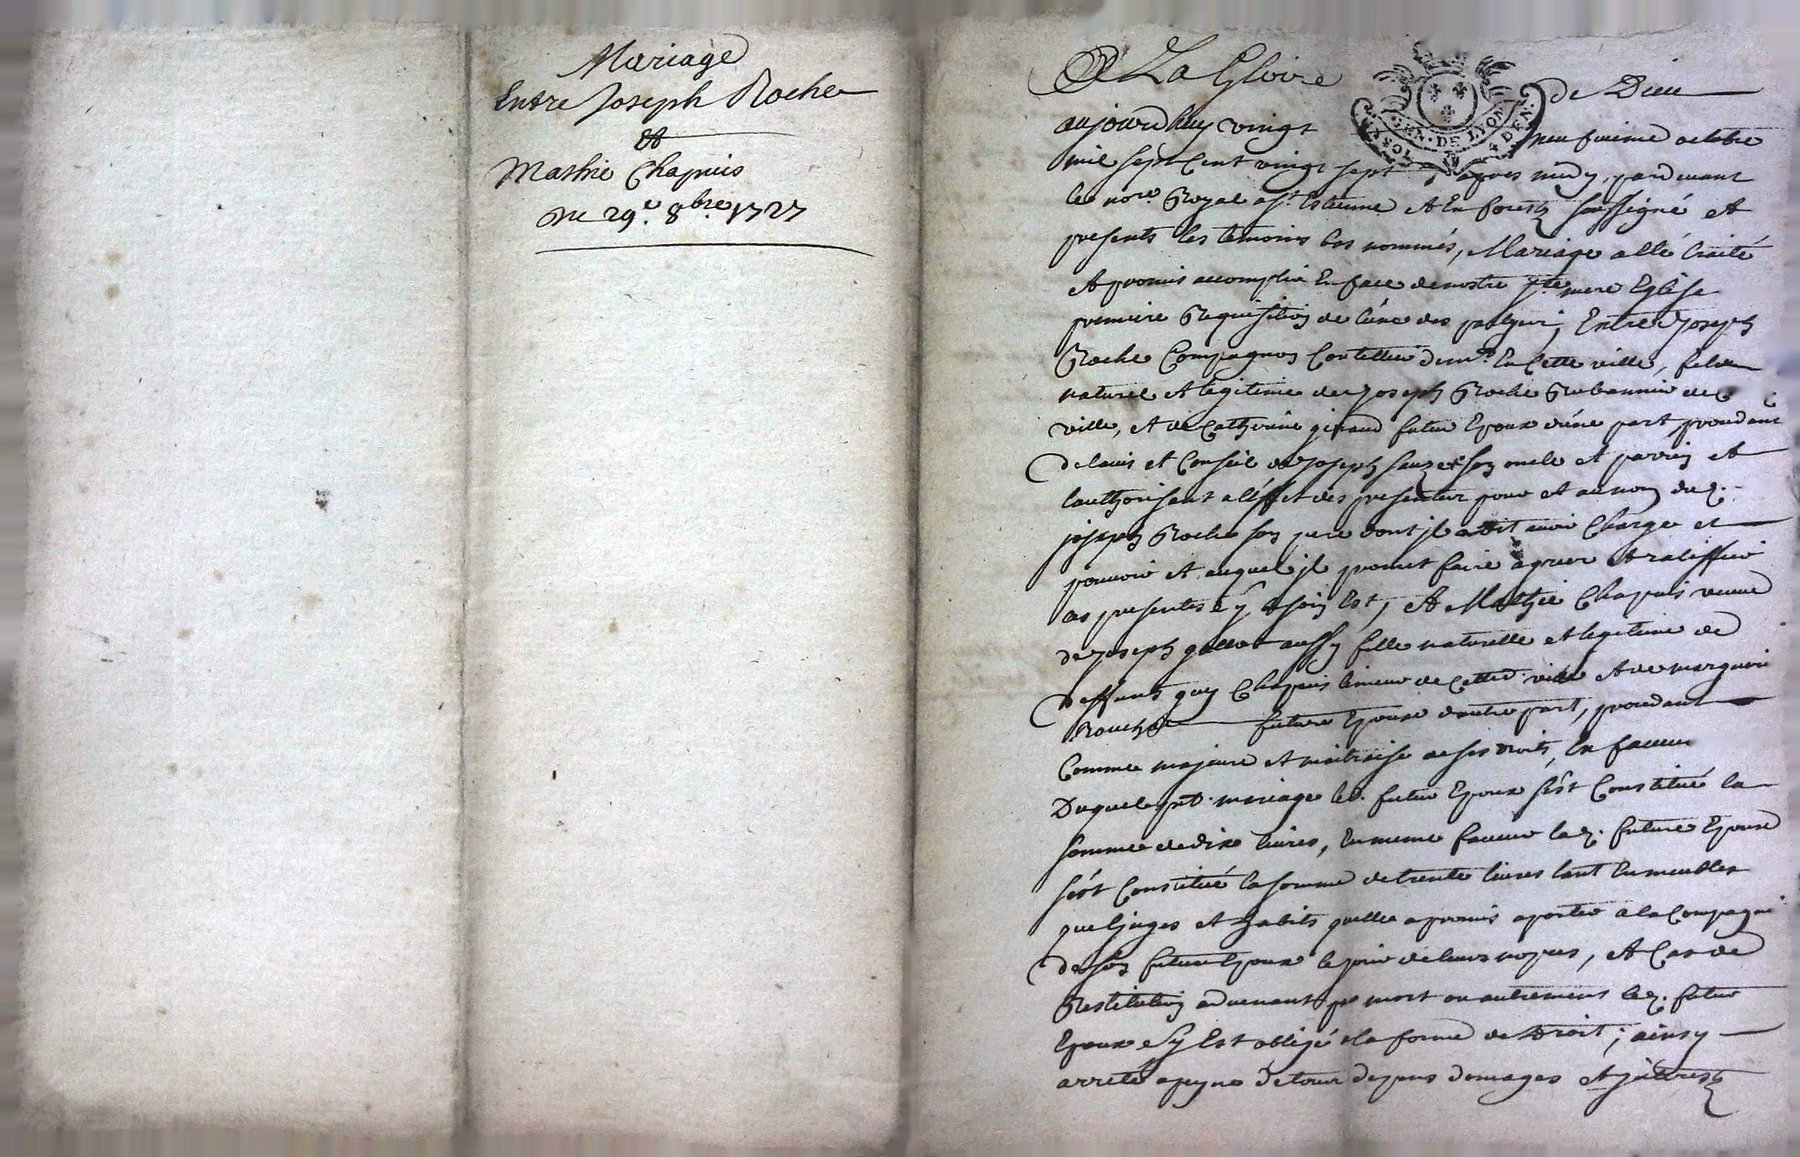 Mariage
Entre Joseph Roche
Et
Mathie Chapuis
Du 29.e 8bre 1727
A La Gloire de Dieu
GEN. DE LYON
4 DEN.
aujourdhuy vingt neufvieme octobre
mil sept Cent vingt sept apres midy, pardevant
le nore. Royal a st. Estienne Et En forestz soussigné Et
presents les temoins bas nommés, Mariage a été traité
Et promis accomplir En face de nostre ste. mere Eglise
premiere Requisition de l'une des parties; Entre Joseph
Roche Compagnon Coutellier demt. En Cette ville, fils
naturel et legitime de Joseph Roche Rubannier de
ville, et de Catherine giraud futur Epoux d'une part procedant
de lavis et Conseil de Joseph son oncle et parrin et
lauthorisant a l'effet des presentes pour et au nom dud.
joseph Roche son pere dont jl a dit avoir Charge et
pouvoir et auquel jl promet faire agreer et ratiffier
ces presentes sy besoin Est, Et Mathie Chapuis veuve
de Joseph aussy fille naturelle et legitime de
deffunt guy Chapuis limeur de Cette ville et de marguerite
future Epouse dautre part, procedant
Comme majeure et maitraise de ses droits, En faveur
Duquel prt. mariage led. futur Epoux s'est Constitué la
somme de dix livres, En meme faveur lad. future Epouse
s'est Constitué la somme de trente livres tant En meubles
que linges et habits quelle a promis aporter a la Compagnie
de son futur Epoux le jour de leurs nopces, et Cas de
Restitution advenant par mort ou autrement led. futur
Epoux sy Est obligé a la forme de Droit; ainsy
arreté a peyne de tous depens domages et jnterest